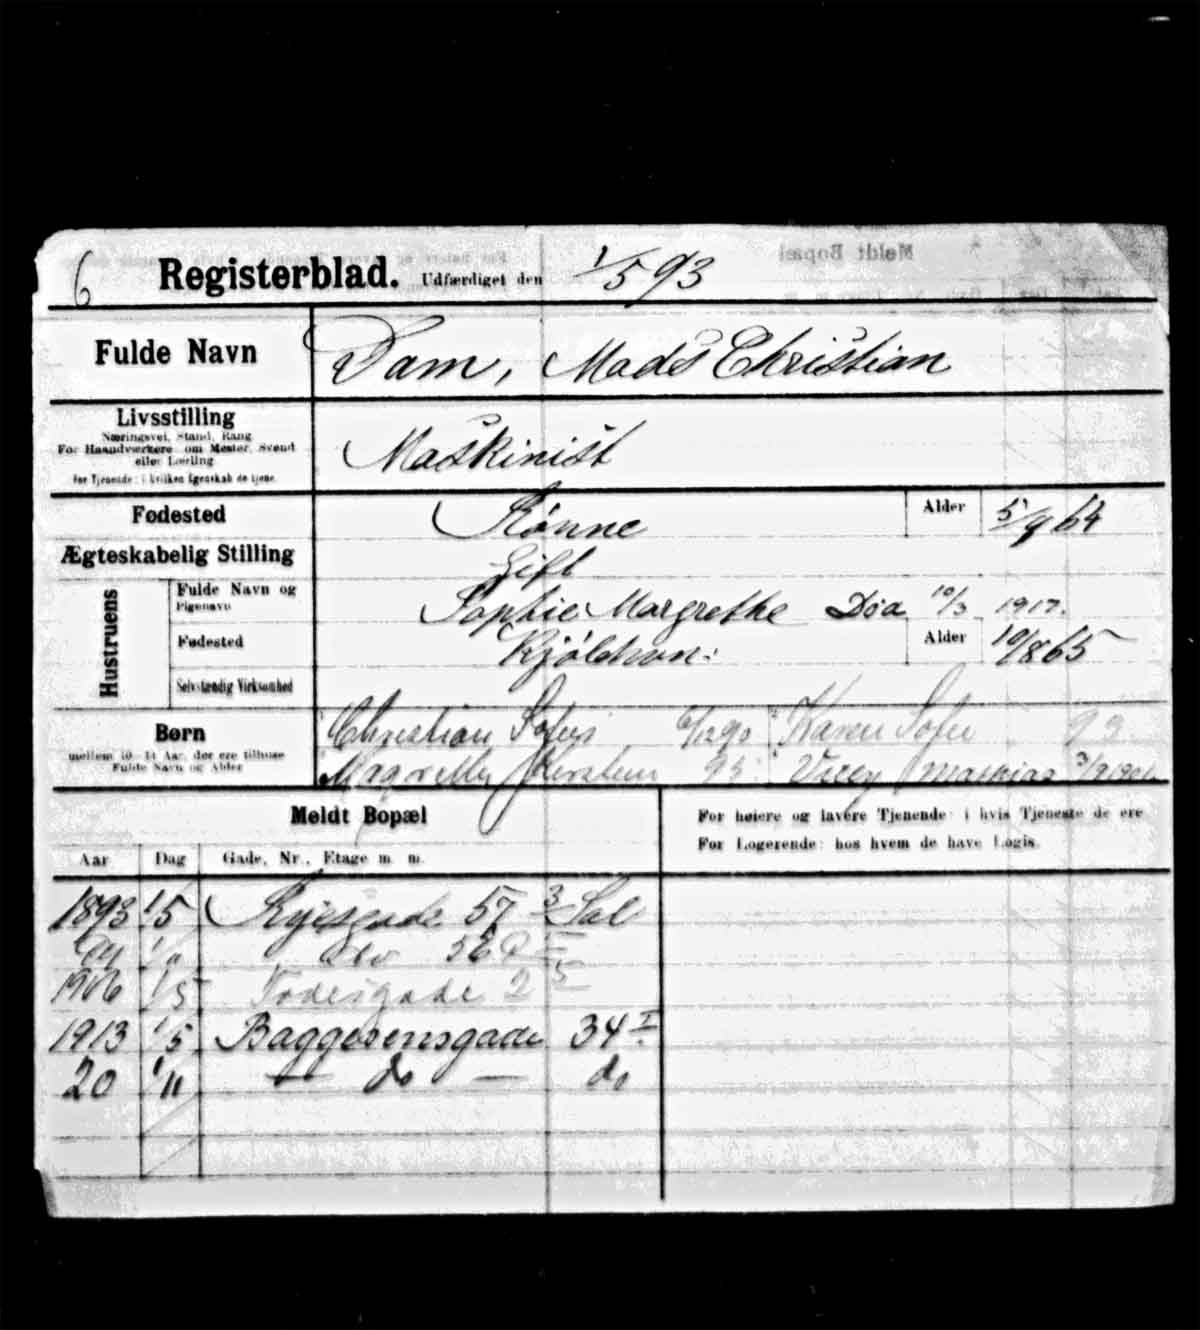 6 Registerblad. Udfærdiget den 1/5 93
Fulde Navn Dam, Mads Christian
Livsstilling
Næringsvei, Stand, Rang
For Haandværkere om Mester, Svend
eller Lærling
For Tjenende: i hvilken Egenskab de tjene.
Maskinist
Fødested Rønne Alder 5/9 64
Ægteskabelig Stilling Gift
Hustruens
Fulde Navn og
Pigenavn
Sophie Margrethe Død 10/3 1917.
Fødested Kjøbhvn: Alder 10/8 65
Selvstændig Virksomhed
Børn
mellem 10-14 Aar, der ere tilhuse
Fulde Navn og Alder
Christian Sofus 6/12 90 Karen Sofie 93
95 Viggo Mathias
Meldt Bopæl
For høiere og lavere Tjenende: i hvis Tjeneste de ere
For Logerende: hos hvem de have Logis.
Aar Dag Gade, Nr., Etage m. m.
1893 1/5 Ryesgade 57 3 Sal
1906 1/5 Fodesgade 2 5
1913 1/5 Baggesensgade 34 I
20 1/11 — do — do
Meldt Bopæl